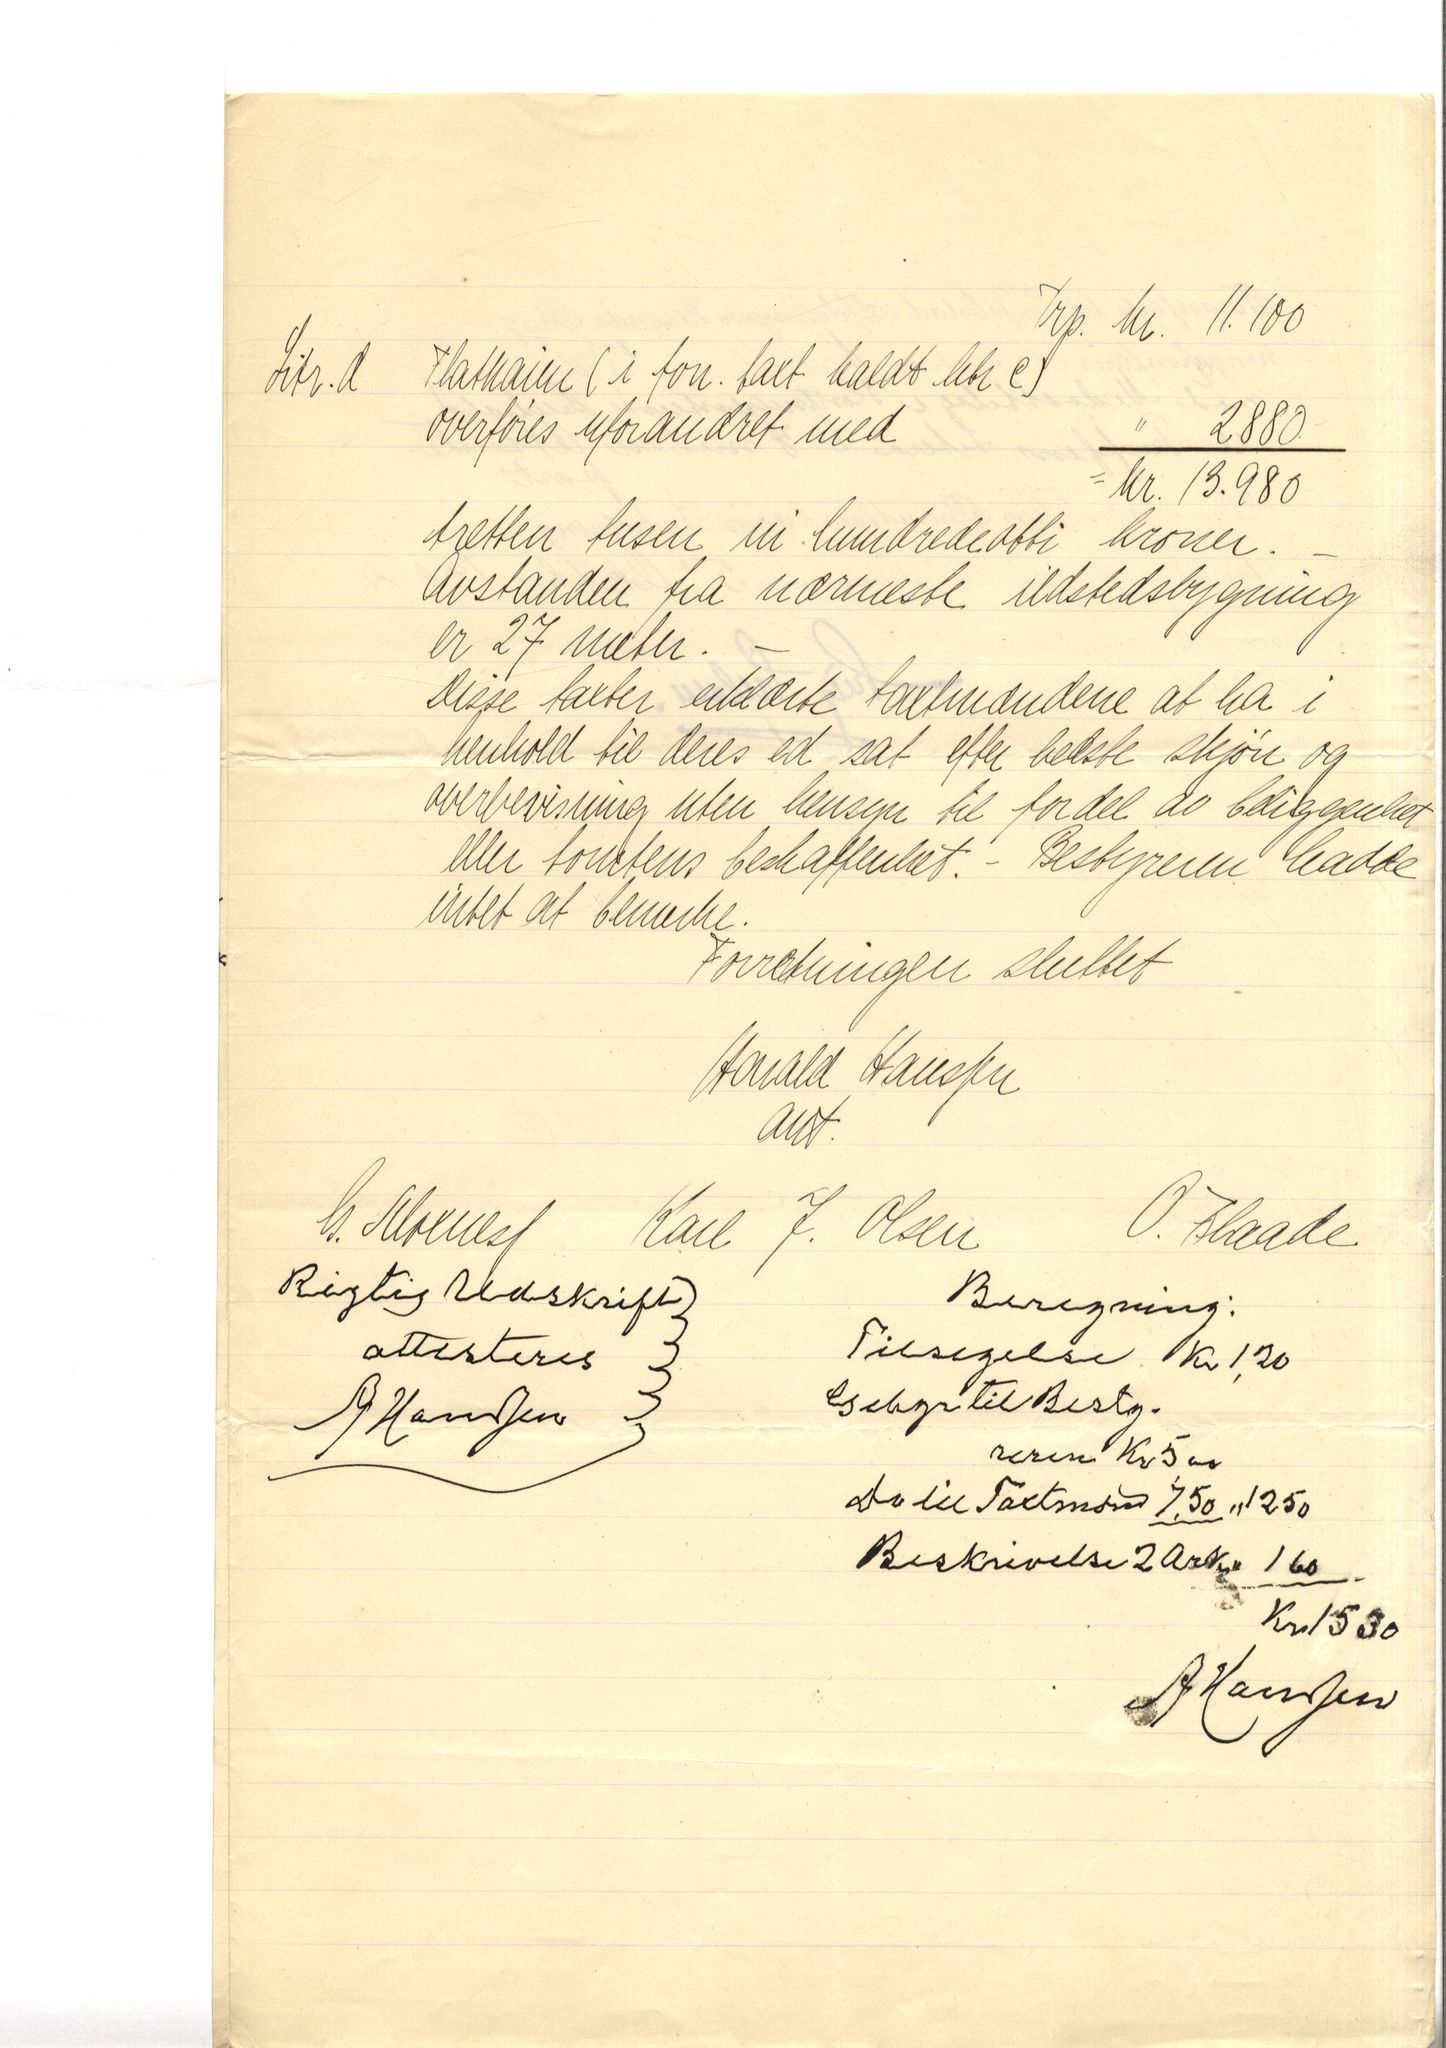 Trp. kr. 11.100
Litr. d Flatkaien (i forr. taxt kaldt litr c)
overføres uforandret med " 2880
= kr. 13.980
tretten tusen ni hundredeotti kroner. –
Avstanden fra nærmeste ildstedsbygning
er 27 meter. –
Disse taxter erklærte taxtmændene at ha i
henhold til deres ed sat efter bedste skjøn og
overbevisning uten hensyn til fordel av beliggenhet
eller tomtens beskaffenhet. – Bestyreren hadde
intet at bemerke.
Forretningen sluttet
Harald Hanssen
Karl J. Olsen O. Flaade
Rigtig Udskrift
attesteres
A Hanssen
Beregning:
Tilsigelse Kr 1,20
Gebyr til Besty-
reren Kr 5 00
Do til Taxtmænd 7,50 " 12 50
Beskrivelse 2 Ark " 1 60
Kr. 15 30
A Hanssen